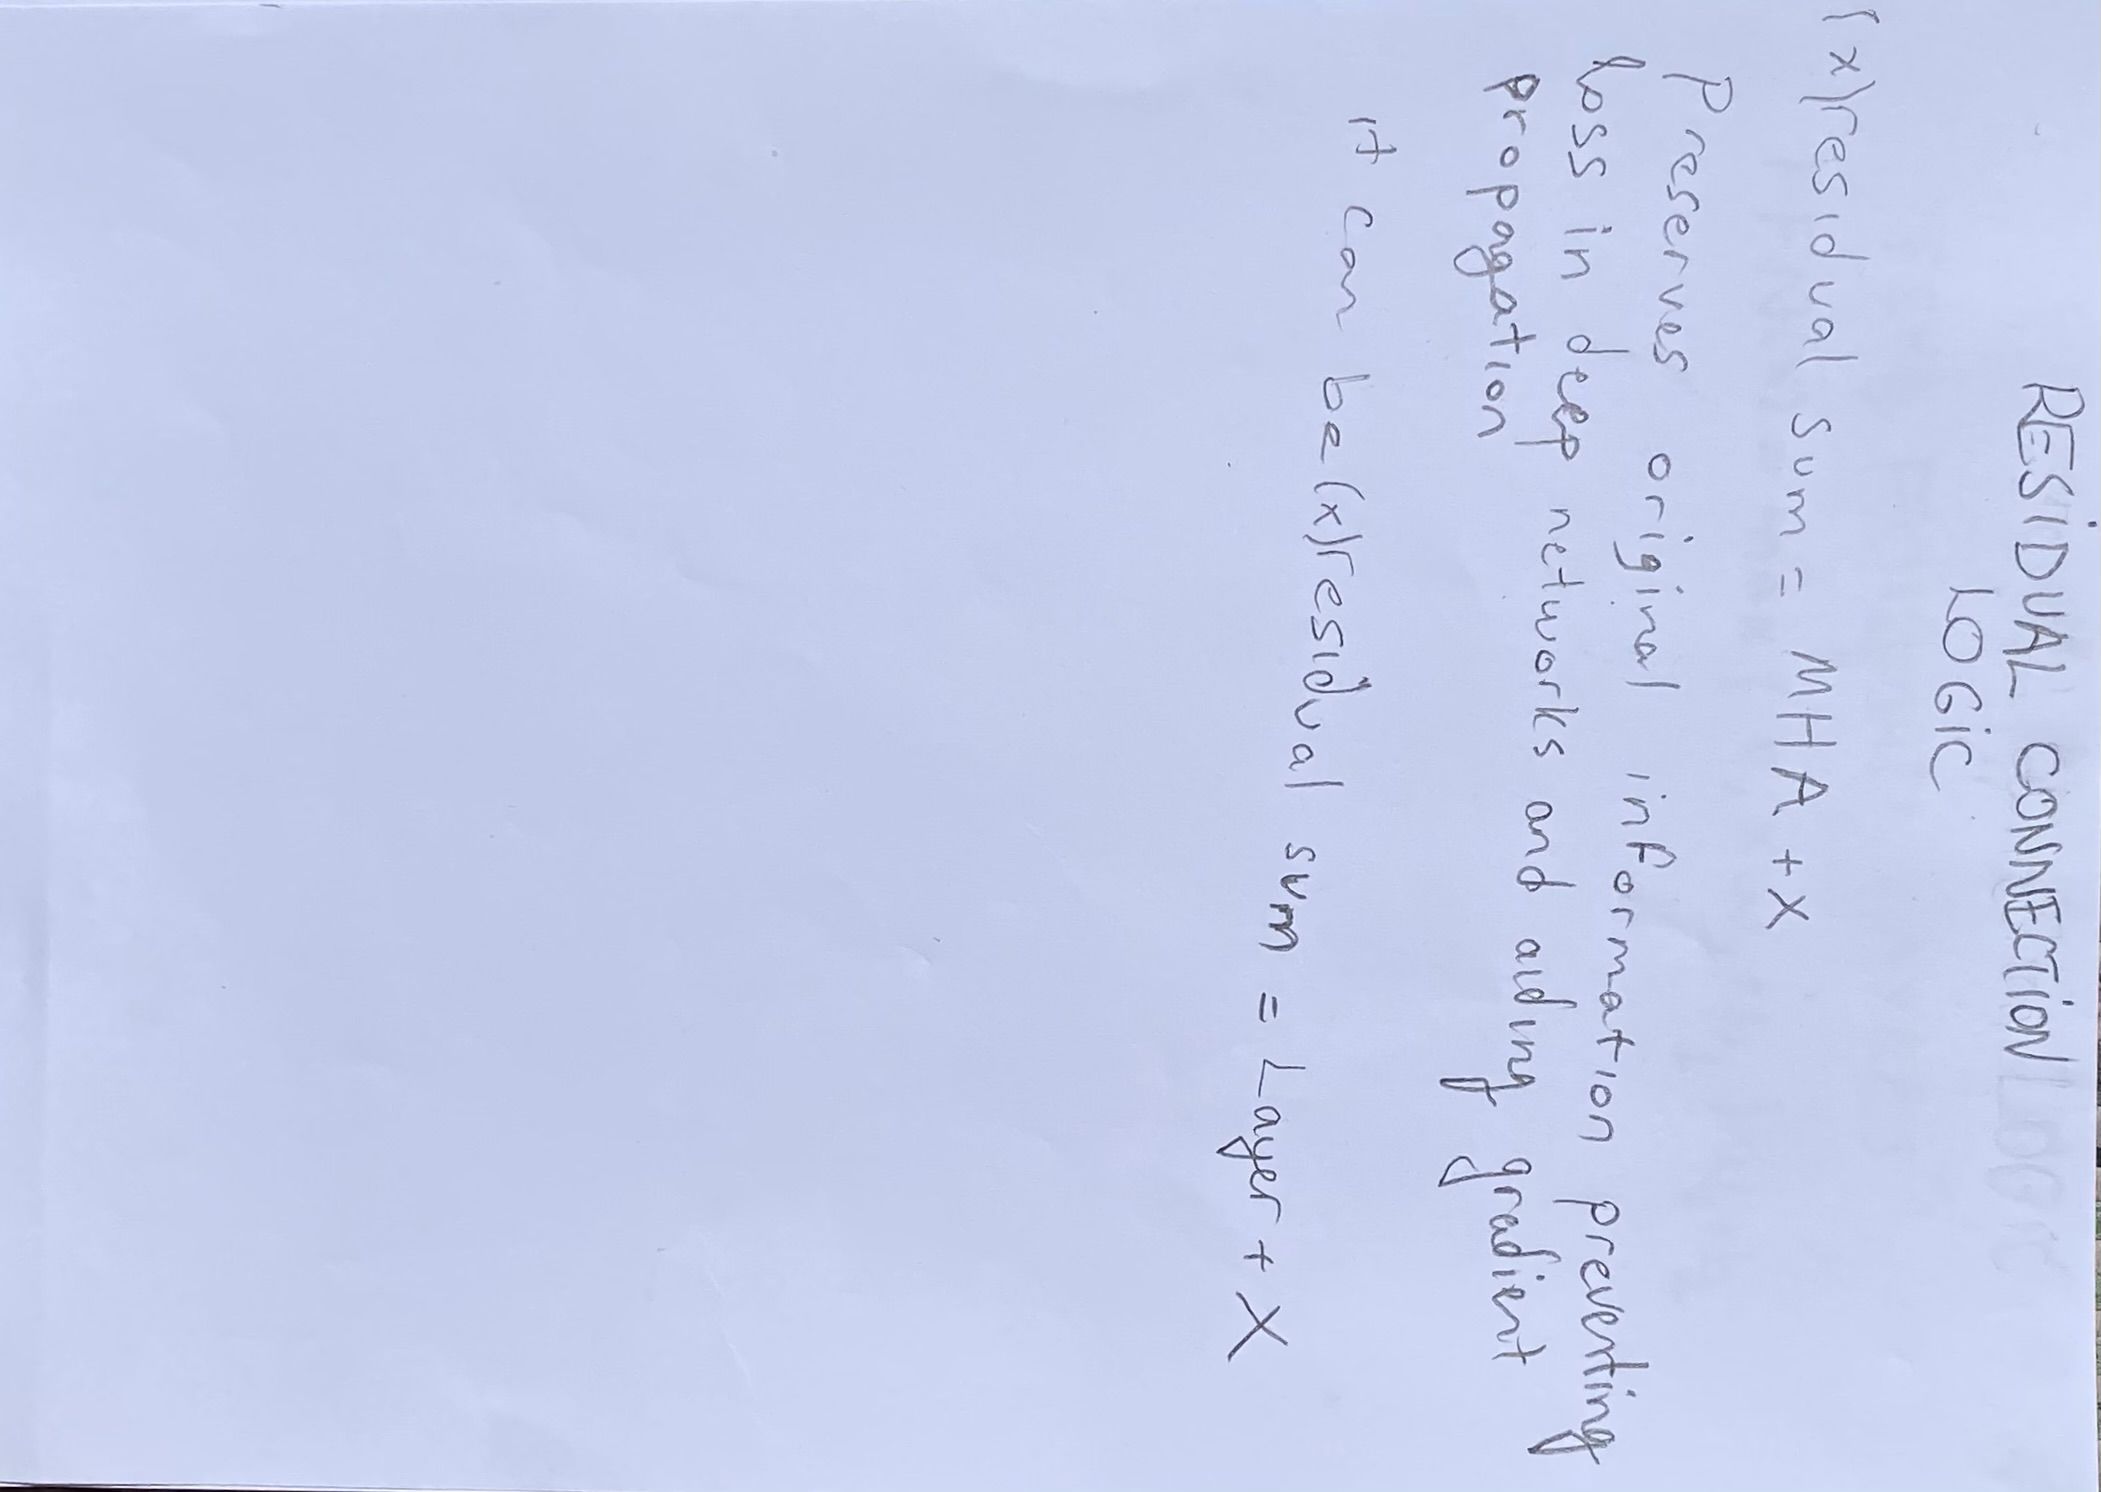 RESIDUAL CONNECTION
LOGIC
(x)residual sum = MHA + X
Preserves original information preventing
loss in deep networks and aiding gradient
propagation
it can be (x)residual sum = Layer + X